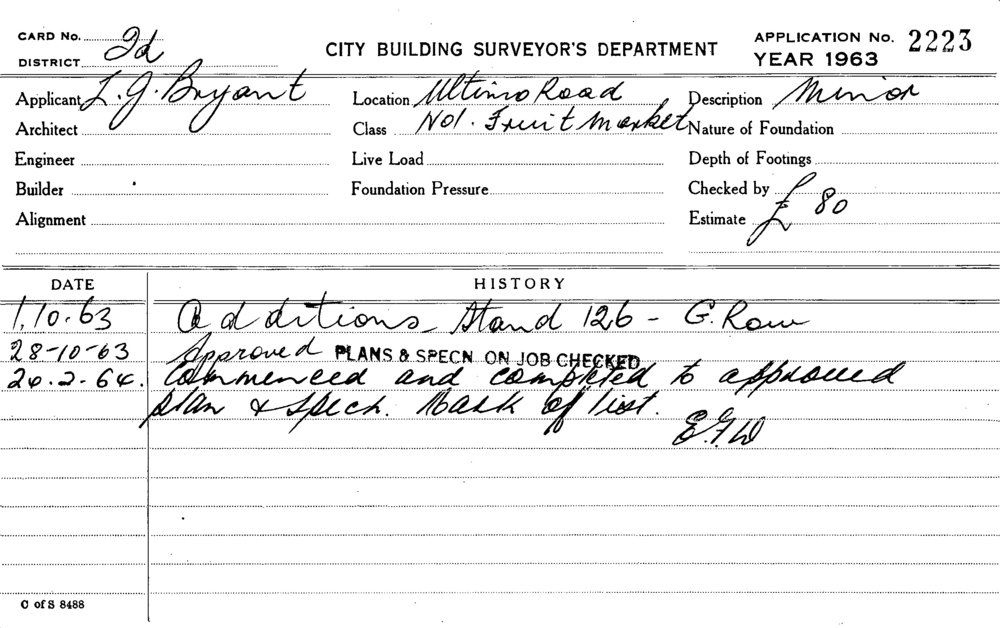 CARD No.
DISTRICT 2d
CITY BUILDING SURVEYOR'S DEPARTMENT
APPLICATION No. 2223
YEAR 1963
Applicant L. J. Bryant Location Ultimo Road Description Minor
Architect Class No1. Fruit Market Nature of Foundation
Engineer Live Load Depth of Footings
Builder Foundation Pressure Checked by
Alignment Estimate £ 80
DATE HISTORY
1.10.63 Additions - Stand 126 - G. Row
28-10-63 Approved PLANS & SPECN ON JOB CHECKED
24.2.64. Commenced and completed to approved
plan & specn. Mark off list.
E.G.W
C of S 8488